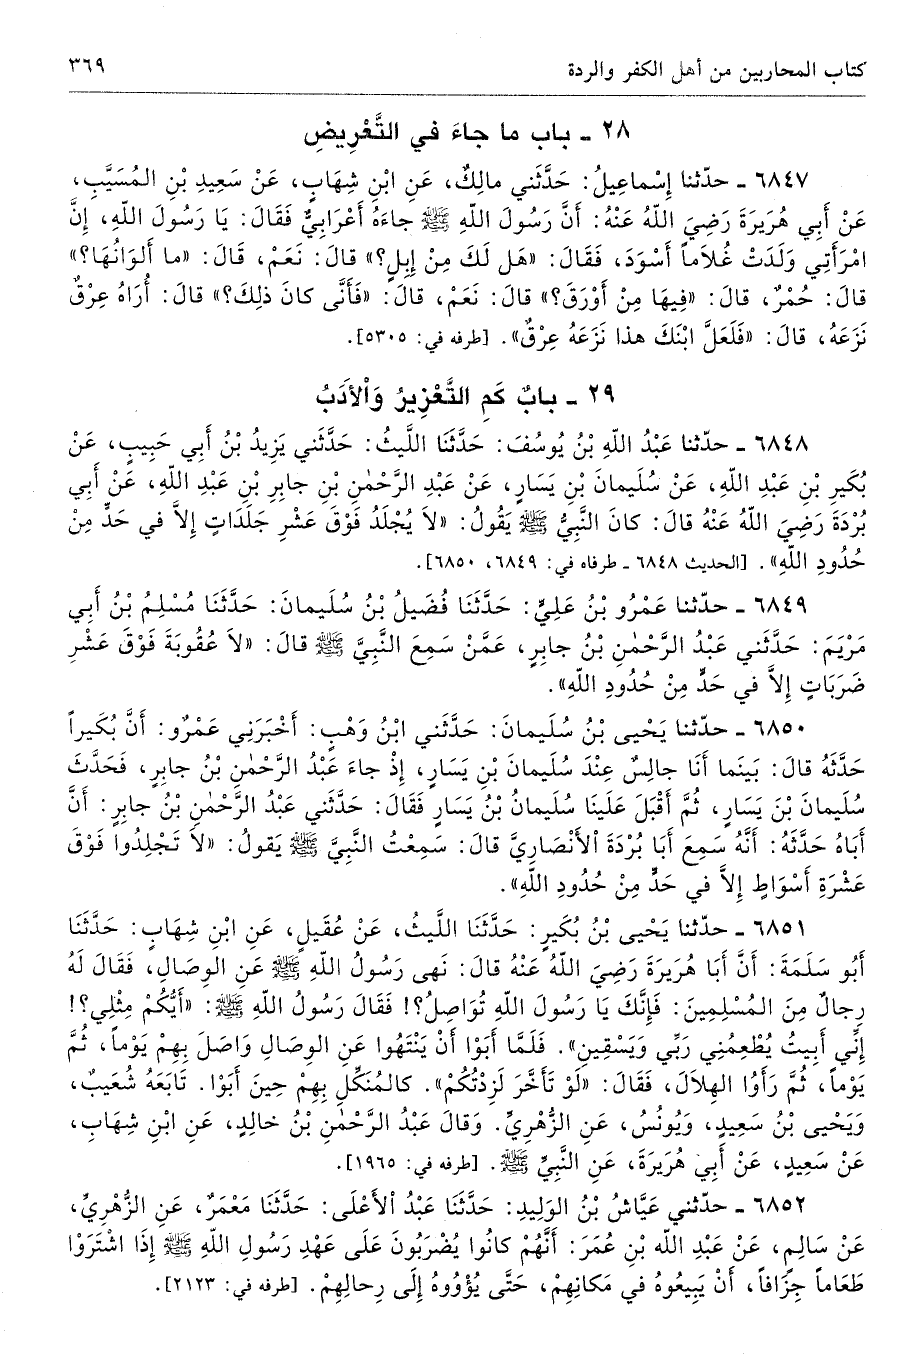 كتاب المحاربين من أهل الكفر والردة ٣٦٩
٢٨ ـ باب ما جاءَ في التَّعْرِيضِ
٦٨٤٧ ـ حدّثنا إِسْماعِيلُ: حَدَّثَني مالِكٌ، عَنِ ابْنِ شِهَابٍ، عَنْ سَعِيدِ بْنِ المُسَيَّبِ،
عَنْ أَبِي هُرَيرَةَ رَضِيَ اللّهُ عَنْهُ: أَنَّ رَسُولَ اللهِ ﷺ جاءَهُ أَعْرَابِيٌّ فَقَالَ: يَا رَسُولَ اللهِ، إِنَّ
امْرَأَتِي وَلَدَتْ غُلاَماً أَسْوَدَ، فَقَالَ: «هَل لَكَ مِنْ إِبِلٍ؟» قالَ: نَعَمْ، قَالَ: «ما أَلوَانُهَا؟»
قالَ: حُمْرٌ، قالَ: «فِيهَا مِنْ أَوْرَقَ؟» قالَ: نَعَمْ، قالَ: «فَأَنَّى كانَ ذلِكَ؟» قالَ: أُرَاهُ عِرْقٌ
نَزَعَهُ، قالَ: «فَلَعَلَّ ابْنَكَ هذا نَزَعَهُ عِرْقٌ». [طرفه في: ٥٣٠٥].
٢٩ ـ بابٌ كَمِ التَّعْزِيرُ وَالأَدَبُ
٦٨٤٨ ـ حدّثنا عَبْدُ اللّهِ بْنُ يُوسُفَ: حَدَّثَنَا اللَّيثُ: حَدَّثَني يَزِيدُ بْنُ أَبِي حَبِيبٍ، عَنْ
بُكَيرِ بْنِ عَبْدِ اللّهِ، عَنْ سُلَيمانَ بْنِ يَسَارٍ، عَنْ عَبْدِ الرَّحْمٰنِ بْنِ جابِرِ بْنِ عَبْدِ اللّهِ، عَنْ أَبِي
بُرْدَةَ رَضِيَ اللّهُ عَنْهُ قالَ: كانَ النَّبِيُّ ﷺ يَقُولُ: «لاَ يُجْلَدُ فَوْقَ عَشْرِ جَلَدَاتٍ إِلاَّ في حَدٍّ مِنْ
حُدُودِ اللّهِ». [الحديث ٦٨٤٨ ـ طرفاه في: ٦٨٤٩، ٦٨٥٠].
٦٨٤٩ ـ حدّثنا عَمْرُو بْنُ عَلِيٍّ: حَدَّثَنَا فُضَيلُ بْنُ سُلَيمانَ: حَدَّثَنَا مُسْلِمُ بْنُ أَبِي
مَرْيَمَ: حَدَّثَني عَبْدُ الرَّحْمٰنِ بْنُ جابِرٍ، عَمَّنْ سَمِعَ النَّبِيَّ ﷺ قالَ: «لاَ عُقُوبَةَ فَوْقَ عَشْرِ
ضَرَبَاتٍ إِلاَّ في حَدٍّ مِنْ حُدُودِ اللّهِ».
٦٨٥٠ ـ حدّثنا يَحْيى بْنُ سُلَيمانَ: حَدَّثَني ابْنُ وَهْبٍ: أَخْبَرَنِي عَمْرٌو: أَنَّ بُكَيراً
حَدَّثَهُ قالَ: بَينَما أَنَا جالِسٌ عِنْدَ سُلَيمانَ بْنِ يَسَارٍ، إِذْ جاءَ عَبْدُ الرَّحْمٰنِ بْنُ جابِرٍ، فَحَدَّثَ
سُلَيمانَ بْنَ يَسَارٍ، ثُمَّ أَقْبَلَ عَلَينَا سُلَيمانُ بْنُ يَسَارٍ فَقَالَ: حَدَّثَني عَبْدُ الرَّحْمٰنِ بْنُ جابِرٍ: أَنَّ
أَباهُ حَدَّثَهُ: أَنَّهُ سَمِعَ أَبَا بُرْدَةَ الأَنْصَارِيَّ قالَ: سَمِعْتُ النَّبِيَّ ﷺ يَقولُ: «لاَ تَجْلِدُوا فَوْقَ
عَشْرَةِ أَسْوَاطٍ إِلاَّ في حَدٍّ مِنْ حُدُودِ اللّهِ».
٦٨٥١ ـ حدّثنا يَحْيى بْنُ بُكَيرٍ: حَدَّثَنَا اللَّيثُ، عَنْ عُقَيلٍ، عَنِ ابْنِ شِهَابٍ: حَدَّثَنَا
أَبُو سَلَمَةَ: أَنَّ أَبَا هُرَيرَةَ رَضِيَ اللّهُ عَنْهُ قالَ: نَهى رَسُولُ اللهِ ﷺ عَنِ الوِصَالِ، فَقَالَ لَهُ
رِجالٌ مِنَ المُسْلِمِينَ: فَإِنَّكَ يَا رَسُولَ اللهِ تُوَاصِلُ؟! فَقَالَ رَسُولُ اللهِ ﷺ: «أَيُّكُمْ مِثْلِي؟!
إِنِّي أَبِيتُ يُطْعِمُنِي رَبِّي وَيَسْقِينِ». فَلَمَّا أَبَوْا أَنْ يَنْتَهُوا عَنِ الوِصَالِ وَاصَلَ بِهِمْ يَوْماً، ثُمَّ
يَوْماً، ثُمَّ رَأَوُا الهِلاَلَ، فَقَالَ: «لَوْ تَأَخَّرَ لَزِدْتُكُمْ». كالمُنَكِّلِ بِهِمْ حِينَ أَبَوْا. تَابَعَهُ شُعَيبٌ،
وَيَحْيى بْنُ سَعِيدٍ، وَيُونُسُ، عَنِ الزُّهْرِيِّ. وَقالَ عَبْدُ الرَّحْمٰنِ بْنُ خالِدٍ، عَنِ ابْنِ شِهَابٍ،
عَنْ سَعِيدٍ، عَنْ أَبِي هُرَيرَةَ، عَنِ النَّبِيِّ ﷺ. [طرفه في: ١٩٦٥].
٦٨٥٢ ـ حدّثني عَيَّاشُ بْنُ الوَلِيدِ: حَدَّثَنَا عَبْدُ الأَعْلَى: حَدَّثَنَا مَعْمَرٌ، عَنِ الزُّهْرِيِّ،
عَنْ سَالِمٍ، عَنْ عَبْدِ اللّه بْنِ عُمَرَ: أَنَّهُمْ كانُوا يُضْرَبُونَ عَلَى عَهْدِ رَسُولِ اللهِ ﷺ إِذَا اشْتَرَوْا
طَعَاماً جِزَافاً، أَنْ يَبِيعُوهُ في مَكانِهِمْ، حَتَّى يُؤْوُوهُ إِلَى رِحالِهِمْ. [طرفه في: ٢١٢٣].